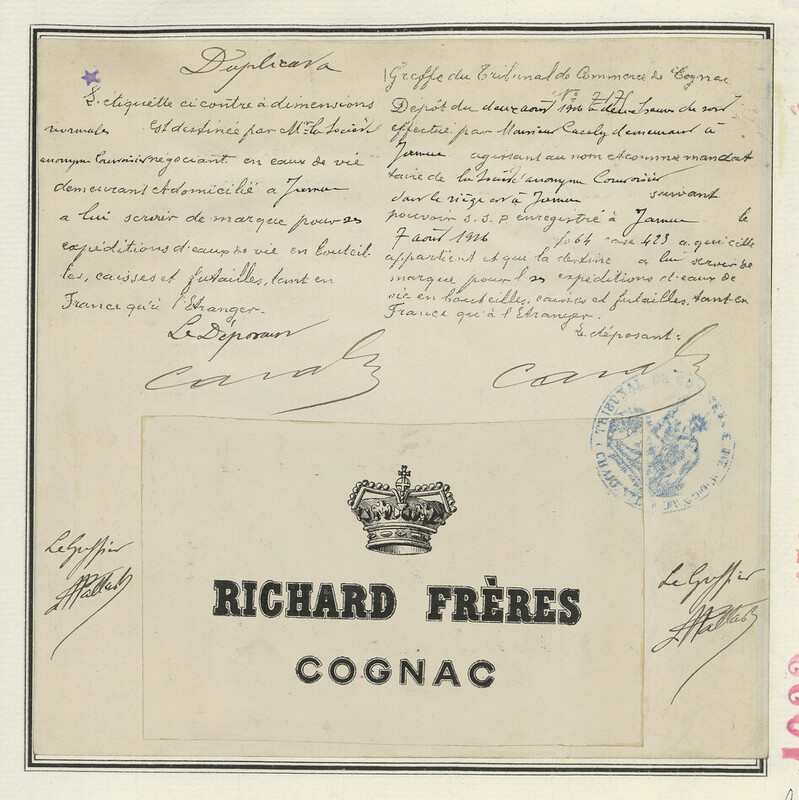 Duplicata
L'étiquette ci contre à dimensions
normales est destinée par Mr la Société
anonyme Courvoisier négociant en eaux de vie
demeurant et domicilié à Jarnac
a lui servir de marque pour ses
expéditions d'eaux de vie en bouteil-
les, caisses et futailles, tant en
France qu'à l'Etranger.
Le Déposant
Greffe du Tribunal de Commerce de Cognac
No 7176
Dépôt du deux août 1906 à deux heures du soir
effectué par Monsieur demeurant à
Jarnac agissant au nom et comme manda
taire de la Société anonyme Courvoisier
dont le siège est à Jarnac suivant
pouvoir S.S.P. enregistré à Jarnac le
août 19 6 fo 64 case 423 a qui cette
appartient et qui la destine a lui servir de
marque pour ses expéditions d'eaux de
vie en bouteilles, caisses et futailles, tant en
France qu'à l'Etranger.
Le déposant:
TRIBUNAL DE COMMERCE DE COGNAC
Le Greffier
RICHARD FRÈRES
COGNAC
Le Greffier